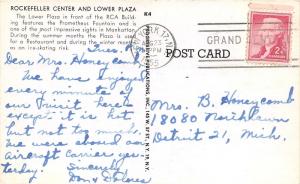 ROCKEFELLER CENTER AND LOWER PLAZA
The Lower Plaza in front of the RCA Build-
ing features the Prometheus Fountain and is
one of the most impressive sights in Manhattan.
During the summer months the Plaza is used
for a Restaurant and during the winter months
as an ice-skating rink.
K4
POST CARD
GRAND
2¢
Tues.
Dear Mrs. Honeycomb,
We have enjoyed
every minute of
our visit here
except it is hot
but not too much.
We were aboard our
aircraft carrier yes-
terday.
Sincerely
Don & Dolores
Mrs. B. Honeycomb
18080 Northlawn
Detroit 21, Mich.